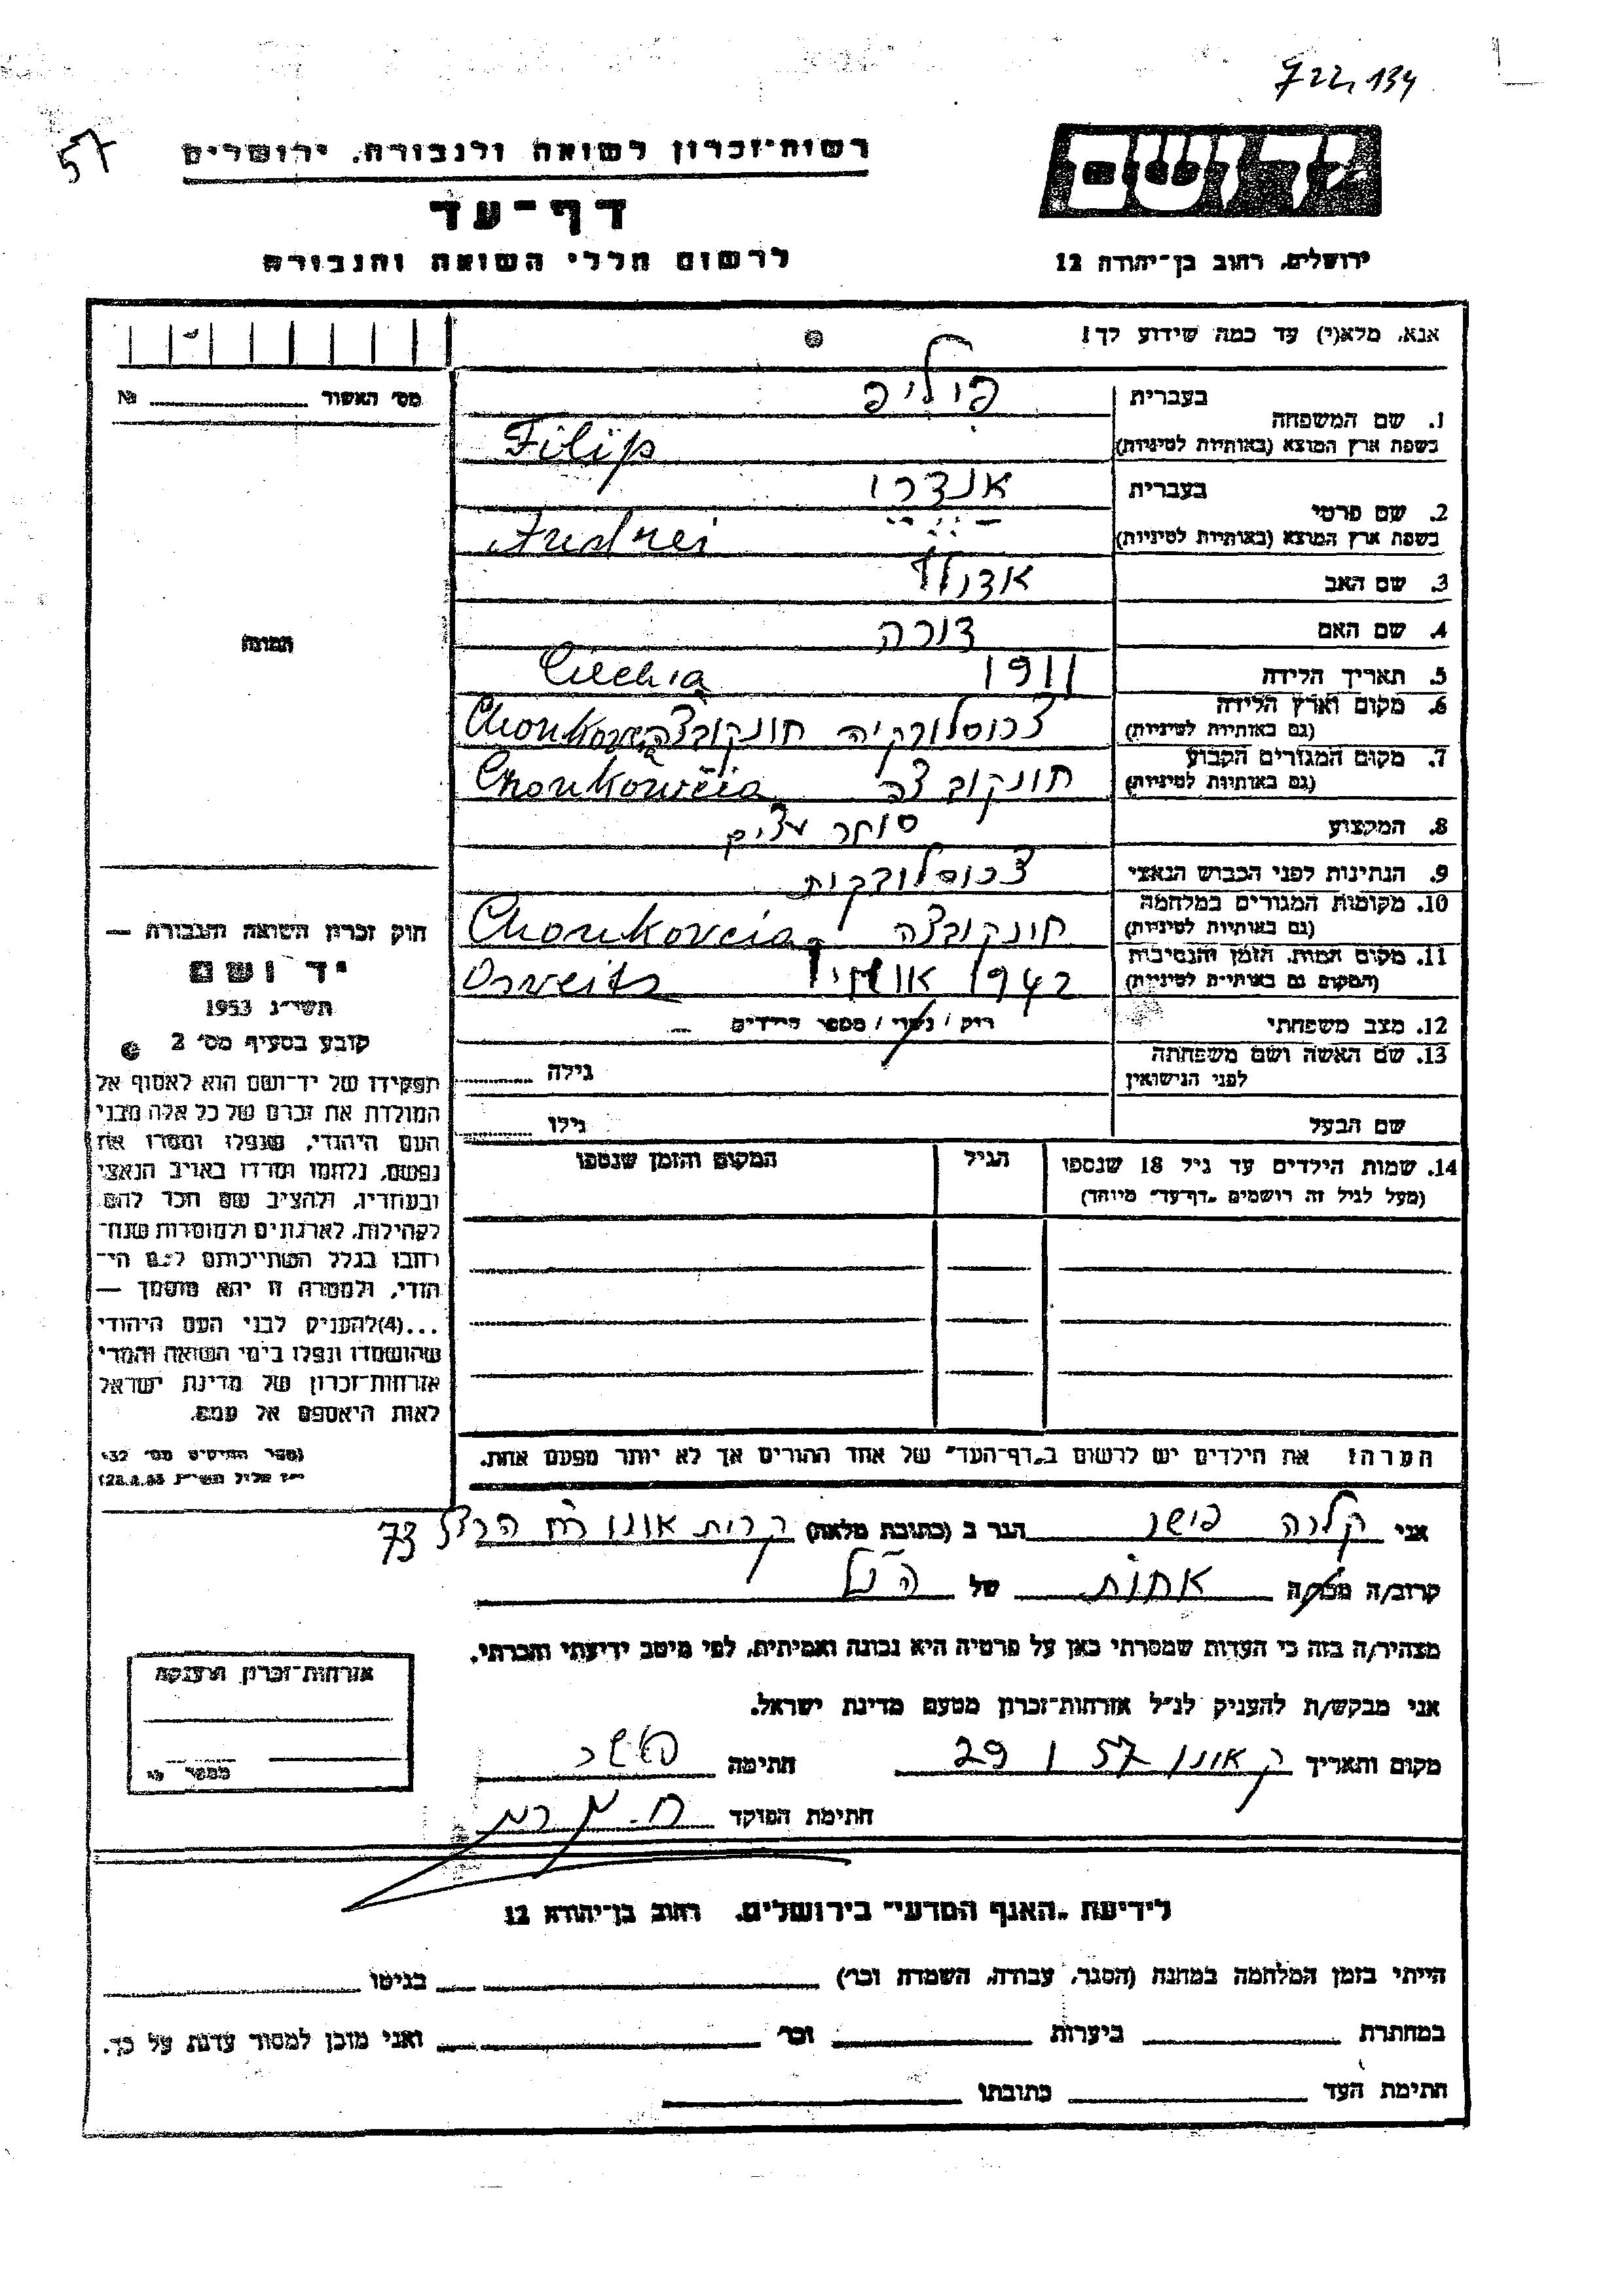 722, 134
57
רשות־זכרון לשואה ולגבורה, ירושלים
דף־עד
לרשום חללי השואה והגבורה
ירושלים, רחוב בן־יהודה 12
אנא, מלא(י) עד כמה שידוע לך!
מס׳ האשור № 
1. שם המשפחה
בעברית פיליפ
בשפת ארץ המוצא (באותיות לטיניות) Filip
2. שם פרטי
בעברית אנדרי
בשפת ארץ המוצא (באותיות לטיניות) Andrei
3. שם האב אדולף
4. שם האם דורה
5. תאריך הלידה 1911
6. מקום וארץ הלידה
(גם באותיות לטיניות) צכוסלובקיה חונקובצה
7. מקום המגורים הקבוע
(גם באותיות לטיניות) חונקובצה
8. המקצוע סוחר עצים
9. הנתינות לפני הכבוש הנאצי צכוסלובקית
10. מקומות המגורים במלחמה
(גם באותיות לטיניות) חונקובצה Chonkovcia
11. מקום המות, הזמן והנסיבות
(המקום גם באותיות לטיניות) 1942 Osveits
12. מצב משפחתי רוק / נשוי / מספר הילדים
13. שם האשה ושם משפחתה
לפני הנישואין גילה
שם הבעל גילו
14. שמות הילדים עד גיל 18 שנספו הגיל המקום והזמן שנספו
(מעל לגיל זה רושמים „דף־עד״ מיוחד)
הערה! את הילדים יש לרשום ב„דף־העד״ של אחד ההורים אך לא יותר מפעם אחת.
התמונה
חוק זכרון השואה והגבורה —
יד ושם
תשי״ג 1953
קובע בסעיף מס׳ 2
תפקידו של יד־ושם הוא לאסוף אל
המולדת את זכרם של כל אלה מבני
העם היהודי, שנפלו ומסרו את
נפשם, נלחמו ומרדו באויב הנאצי
ובעוזריו, ולהציב שם וזכר להם,
לקהילות, לארגונים ולמוסדות שנח־
רבו בגלל השתייכותם לעם הי־
הודי, ולמטרה זו יהא מוסמך —
...(4) להעניק לבני העם היהודי
שהושמדו ונפלו בימי השואה והמרי
אזרחות־זכרון של מדינת ישראל
לאות היאספם אל עמם.
(ספר החוקים מס׳ 132
אני קלרה פישר הגר ב (כתובת מלאה) קרית אונו רח׳ הרצל 73
קרוב/ה אחות של הנ״ל
מצהיר/ה בזה כי העדות שמסרתי כאן על פרטיה היא נכונה ואמיתית, לפי מיטב ידיעתי והכרתי.
אני מבקש/ת להעניק לנ״ל אזרחות־זכרון מטעם מדינת ישראל.
מקום ותאריך ק אונו 29 1 57 חתימה פישר
חתימת הפוקד
אזרחות־זכרון הוענקה
לידיעת „האגף המדעי״ בירושלים, רחוב בן־יהודה 12
הייתי בזמן המלחמה במחנה (הסגר, עבודה, השמדה וכו׳) בגיטו
במחתרת ביערות וכו׳ ואני מוכן למסור עדות על כך.
חתימת העד כתובתו